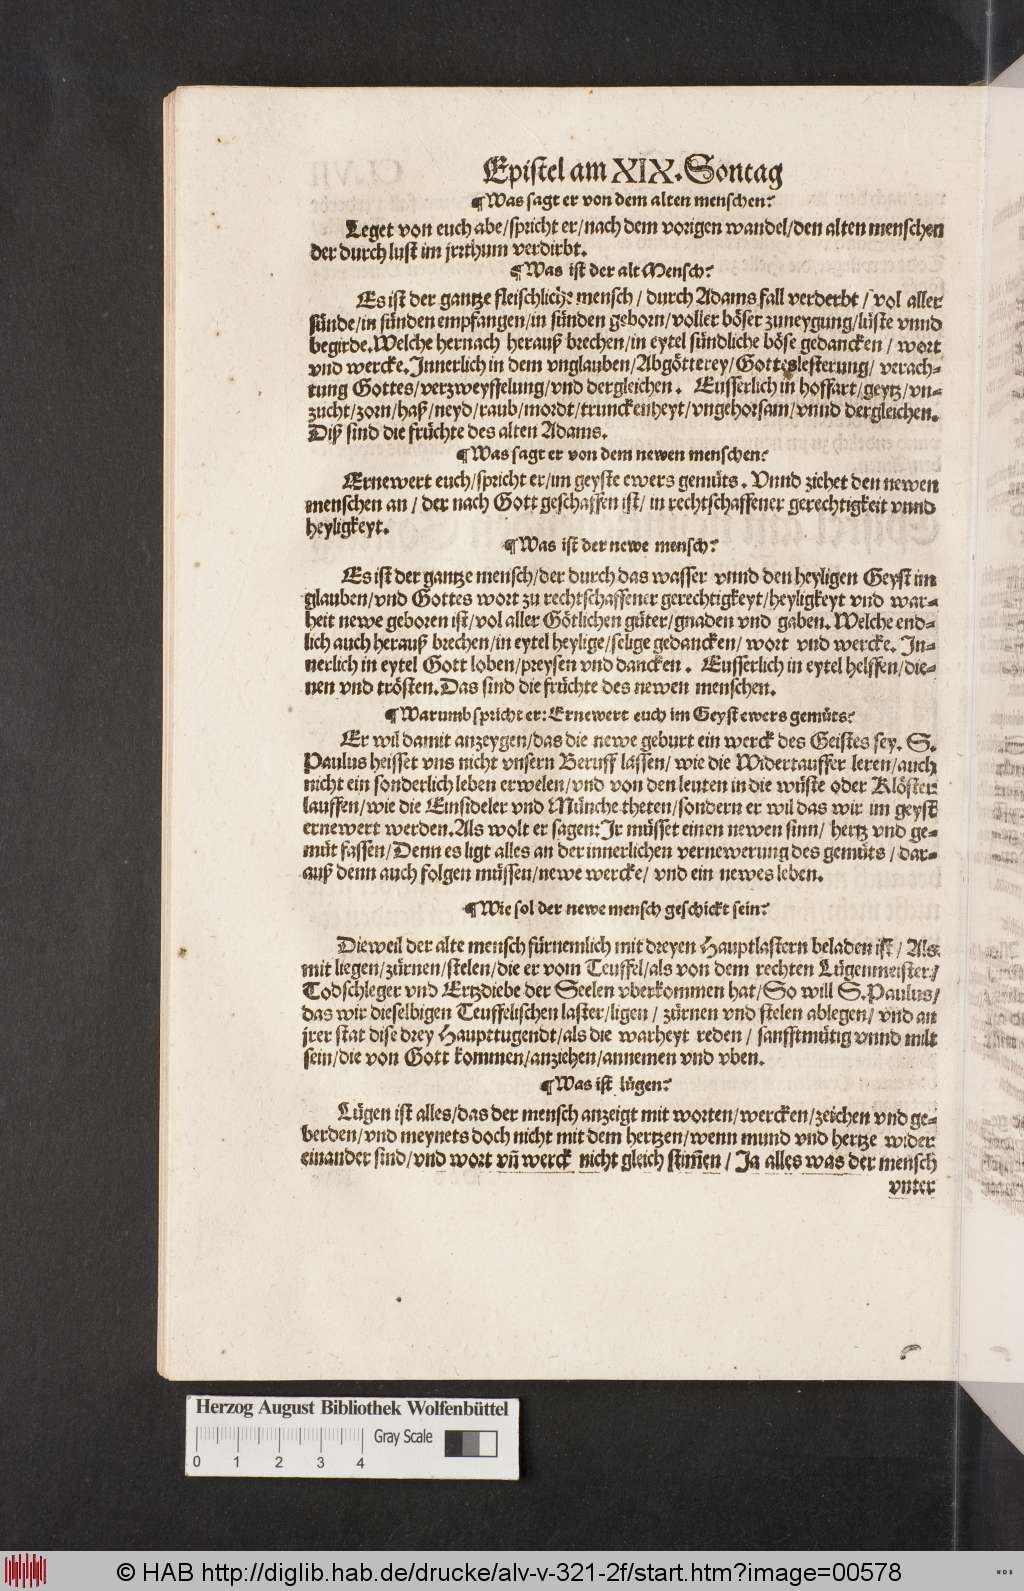 Epistel am XIX. Sontag
¶Was sagt er von dem alten menschen?
Leget von euch abe/spricht er/nach dem vorigen wandel/den alten menschen
der durch lust im jrrthum verdirbt.
¶Was ist der alt Mensch?
Es ist der gantze fleischliche mensch / durch Adams fall verderbt / vol aller
sünde/in sünden empfangen/in sünden geborn/voller böser zuneygung/lüste vnnd
begirde.Welche hernach herauß brechen/in eytel sündliche böse gedancken / wort
vnd wercke.Innerlich in dem vnglauben/Abgötterey/Gotteslesterung/ verach-
tung Gottes/verzweyffelung/vnd dergleichen. Eusserlich in hoffart/geytz/vn-
zucht/zorn/haß/neyd/raub/mordt/trunckenheyt/vngehorsam/vnnd dergleichen.
Diß sind die früchte des alten Adams.
¶Was sagt er von dem newen menschen?
Ernewert euch/spricht er/im geyste ewers gemüts. Vnnd ziehet den newen
menschen an / der nach Gott geschaffen ist/ in rechtschaffener gerechtigkeit vnnd
heyligkeyt.
¶Was ist der newe mensch?
Es ist der gantze mensch/der durch das wasser vnnd den heyligen Geyst im
glauben/vnd Gottes wort zu rechtschaffener gerechtigkeyt/heyligkeyt vnd war-
heit newe geboren ist/vol aller Götlichen güter/gnaden vnd gaben. Welche end-
lich auch herauß brechen/in eytel heylige/selige gedancken/ wort vnd wercke. In-
nerlich in eytel Gott loben/preysen vnd dancken. Eusserlich in eytel helffen/die-
nen vnd trösten.Das sind die früchte des newen menschen.
¶Warumb spricht er: Ernewert euch im Geyst ewers gemüts?
Er wil damit anzeygen/das die newe geburt ein werck des Geistes sey. S.
Paulus heisset vns nicht vnsern Beruff lassen/ wie die Widertauffer leren/auch
nicht ein sonderlich leben erwelen/vnd von den leuten in die wüste oder Klöster
lauffen/wie die Einsideler vnd Münche theten/sondern er wil das wir im geyst
ernewert werden.Als wolt er sagen:Ir müsset einen newen sinn/ hertz vnd ge-
müt fassen/Denn es ligt alles an der innerlichen vernewerung des gemüts / dar-
auß denn auch folgen müssen/newe wercke/ vnd ein newes leben.
¶Wie sol der newe mensch geschickt sein?
Dieweil der alte mensch fürnemlich mit dreyen Hauptlastern beladen ist / Als
mit liegen/zürnen/stelen/die er vom Teuffel/als von dem rechten Lügenmeister/
Todschleger vnd Ertzdiebe der Seelen vberkommen hat/So will S.Paulus/
das wir dieselbigen Teuffelischen laster/ligen / zürnen vnd stelen ablegen/ vnd an
jrer stat dise drey Haupttugendt/als die warheyt reden / sanfftmütig vnnd milt
sein/die von Gott kommen/anziehen/annemen vnd vben.
¶Was ist lügen?
Lügen ist alles/das der mensch anzeigt mit worten/wercken/zeichen vnd ge-
berden/vnd meynets doch nicht mit dem hertzen/wenn mund vnd hertze wider
einander sind/vnd wort vñ werck nicht gleich stim̃en / Ja alles was der mensch
vnter
Herzog August Bibliothek Wolfenbüttel
Gray Scale
0 1 2 3 4
© HAB http://diglib.hab.de/drucke/alv-v-321-2f/start.htm?image=00578